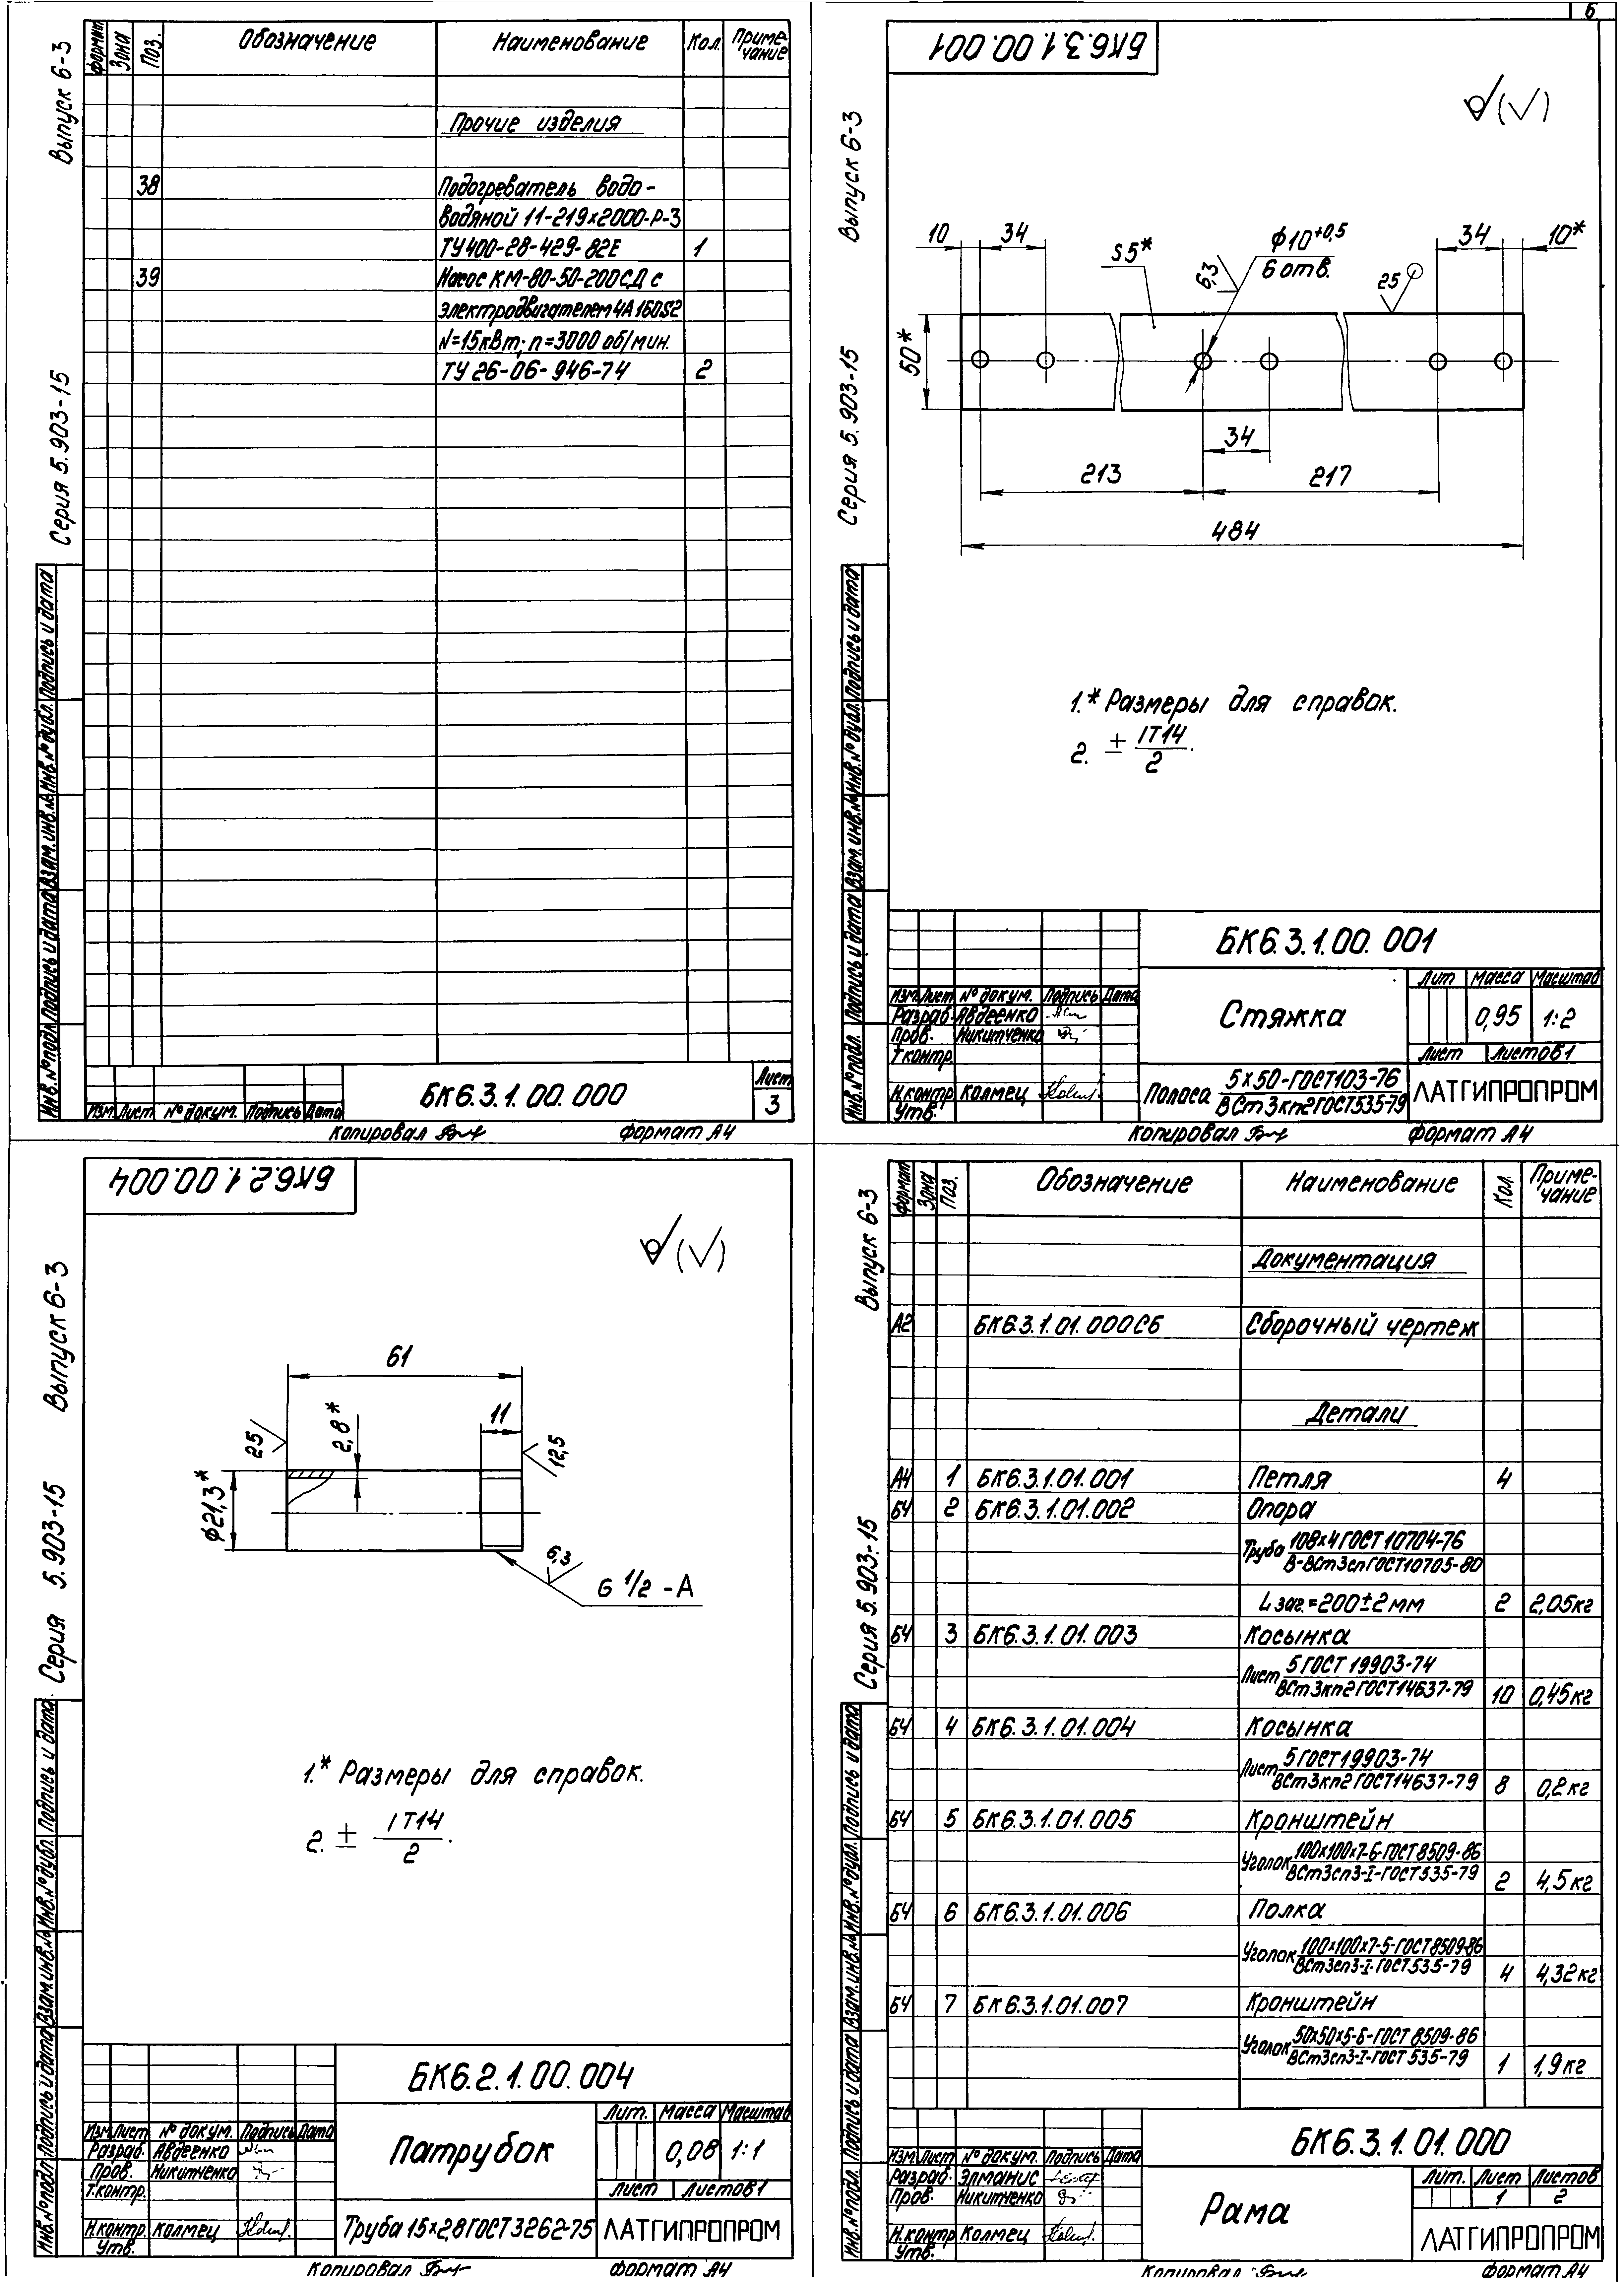 6
Выпуск 6-3
Серия 5.903-15
Формат Зона Поз. Обозначение Наименование Кол. Приме-
чание
Прочие изделия
38 Подогреватель водо-
водяной 11-219х2000-Р-3
ТУ400-28-429-82Е 1
39 Насос КМ-80-50-200СД с
электродвигателем 4А160S2
N=15кВт; n=3000 об/мин.
ТУ 26-06-946-74 2
Инв.№подл. Подпись и дата Взам.инв.№ Инв.№дубл. Подпись и дата
БК6.3.1.00.000
Лист
3
Изм. Лист № докум. Подпись Дата
Копировал Формат А4
БК6.3.1.00.001
Выпуск 6-3
Серия 5.903-15
(√)
10 34 S5* ϕ10+0,5 34 10*
6 отв.
6,3
25
50*
34
213 217
484
1.* Размеры для справок.
2. ± IT14/2.
Инв.№подл. Подпись и дата Взам.инв.№ Инв.№дубл. Подпись и дата
БК6.3.1.00.001
Изм. Лист № докум. Подпись Дата
Разраб. Авдеенко
Пров. Никитченко
Т контр.
Н.контр. Колмец
Утв.
Стяжка
Лит Масса Масштаб
0,95 1:2
Лист Листов 1
Полоса 5х50-ГОСТ103-76
ВСт3кп2ГОСТ535-79
ЛАТГИПРОПРОМ
Копировал Формат А4
БК6.2.1.00.004
Выпуск 6-3
Серия 5.903-15
(√)
61
11
2,8*
25
12,5
ϕ21,3*
6,3
G 1/2 -А
1.* Размеры для справок.
2. ± IT14/2.
Инв.№подл. Подпись и дата Взам.инв.№ Инв.№дубл. Подпись и дата
БК6.2.1.00.004
Изм. Лист № докум. Подпись Дата
Разраб. Авдеенко
Пров. Никитченко
Т.контр.
Н.контр. Колмец
Утв.
Патрубок
Лит. Масса Масштаб
0,08 1:1
Лист Листов 1
Труба 15х2,8ГОСТ3262-75
ЛАТГИПРОПРОМ
Копировал Формат А4
Выпуск 6-3
Серия 5.903-15
Формат Зона Поз. Обозначение Наименование Кол. Приме-
чание
Документация
А2 БК6.3.1.01.000СБ Сборочный чертеж
Детали
А4 1 БК6.3.1.01.001 Петля 4
БЧ 2 БК6.3.1.01.002 Опора
Труба 108х4 ГОСТ 10704-76
В-ВСт3сп ГОСТ10705-80
L заг.=200±2мм 2 2,05кг
БЧ 3 БК6.3.1.01.003 Косынка
Лист 5 ГОСТ 19903-74
ВСт3кп2 ГОСТ14637-79 10 0,45кг
БЧ 4 БК6.3.1.01.004 Косынка
Лист 5 ГОСТ19903-74
ВСт3кп2 ГОСТ14637-79 8 0,2кг
БЧ 5 БК6.3.1.01.005 Кронштейн
Уголок 100х100х7-Б-ГОСТ 8509-86
ВСт3сп3-I-ГОСТ535-79 2 4,5кг
БЧ 6 БК6.3.1.01.006 Полка
Уголок 100х100х7-Б-ГОСТ8509-86
ВСт3сп3-I-ГОСТ535-79 4 4,32кг
БЧ 7 БК6.3.1.01.007 Кронштейн
Уголок 50х50х5-Б-ГОСТ 8509-86
ВСт3сп3-I-ГОСТ 535-79 1 1,9кг
Инв.№подл. Подпись и дата Взам.инв.№ Инв.№дубл. Подпись и дата
БК6.3.1.01.000
Изм. Лист № докум. Подпись Дата
Разраб. Элманис
Пров. Никитченко
Н.контр. Колмец
Утв.
Рама
Лит. Лист Листов
1 2
ЛАТГИПРОПРОМ
Копировал Формат А4